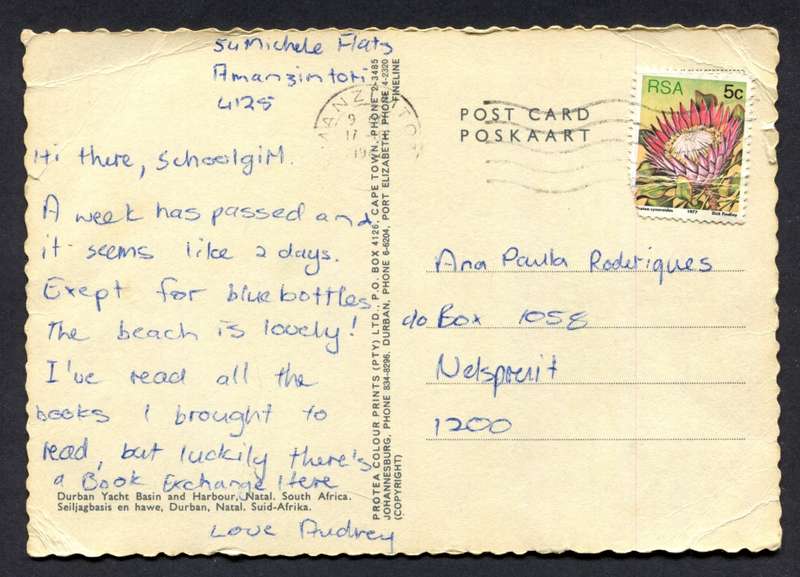 54 Michele Flats
Amanzimtoti
4125
Hi there, schoolgirl.
A week has passed and
it seems like 2 days.
Exept for bluebottles
the beach is lovely!
I've read all the
books I brought to
read, but luckily there's
a Book Exchange Here
Love Audrey
Durban Yacht Basin and Harbour, Natal. South Africa.
Seiljagbasis en hawe, Durban, Natal. Suid-Afrika.
PROTEA COLOUR PRINTS (PTY) LTD., P.O. BOX 4126, CAPE TOWN, PHONE 2-3485
JOHANNESBURG, PHONE 834-8296. DURBAN, PHONE 6-6204. PORT ELIZABETH, PHONE 4-2320
(COPYRIGHT) FINELINE
POST CARD
POSKAART
RSA 5c
1977 Dick Findlay
Ana Paula Rodrigues
c/o Box 1058
Nelspruit
1200